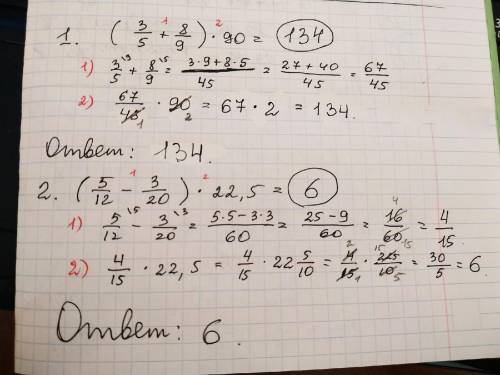 1. (3/5 + 8/9) · 90 = 134
1) 3/5 + 8/9 = (3·9+8·5)/45 = (27+40)/45 = 67/45
2) 67/45 · 90 = 67 · 2 = 134.
Ответ: 134.
2. (5/12 - 3/20) · 22,5 = 6
1) 5/12 - 3/20 = (5·5-3·3)/60 = (25-9)/60 = 16/60 = 4/15.
2) 4/15 · 22,5 = 4/15 · 22 5/10 = 4/15 · 225/10 = 30/5 = 6.
Ответ: 6.